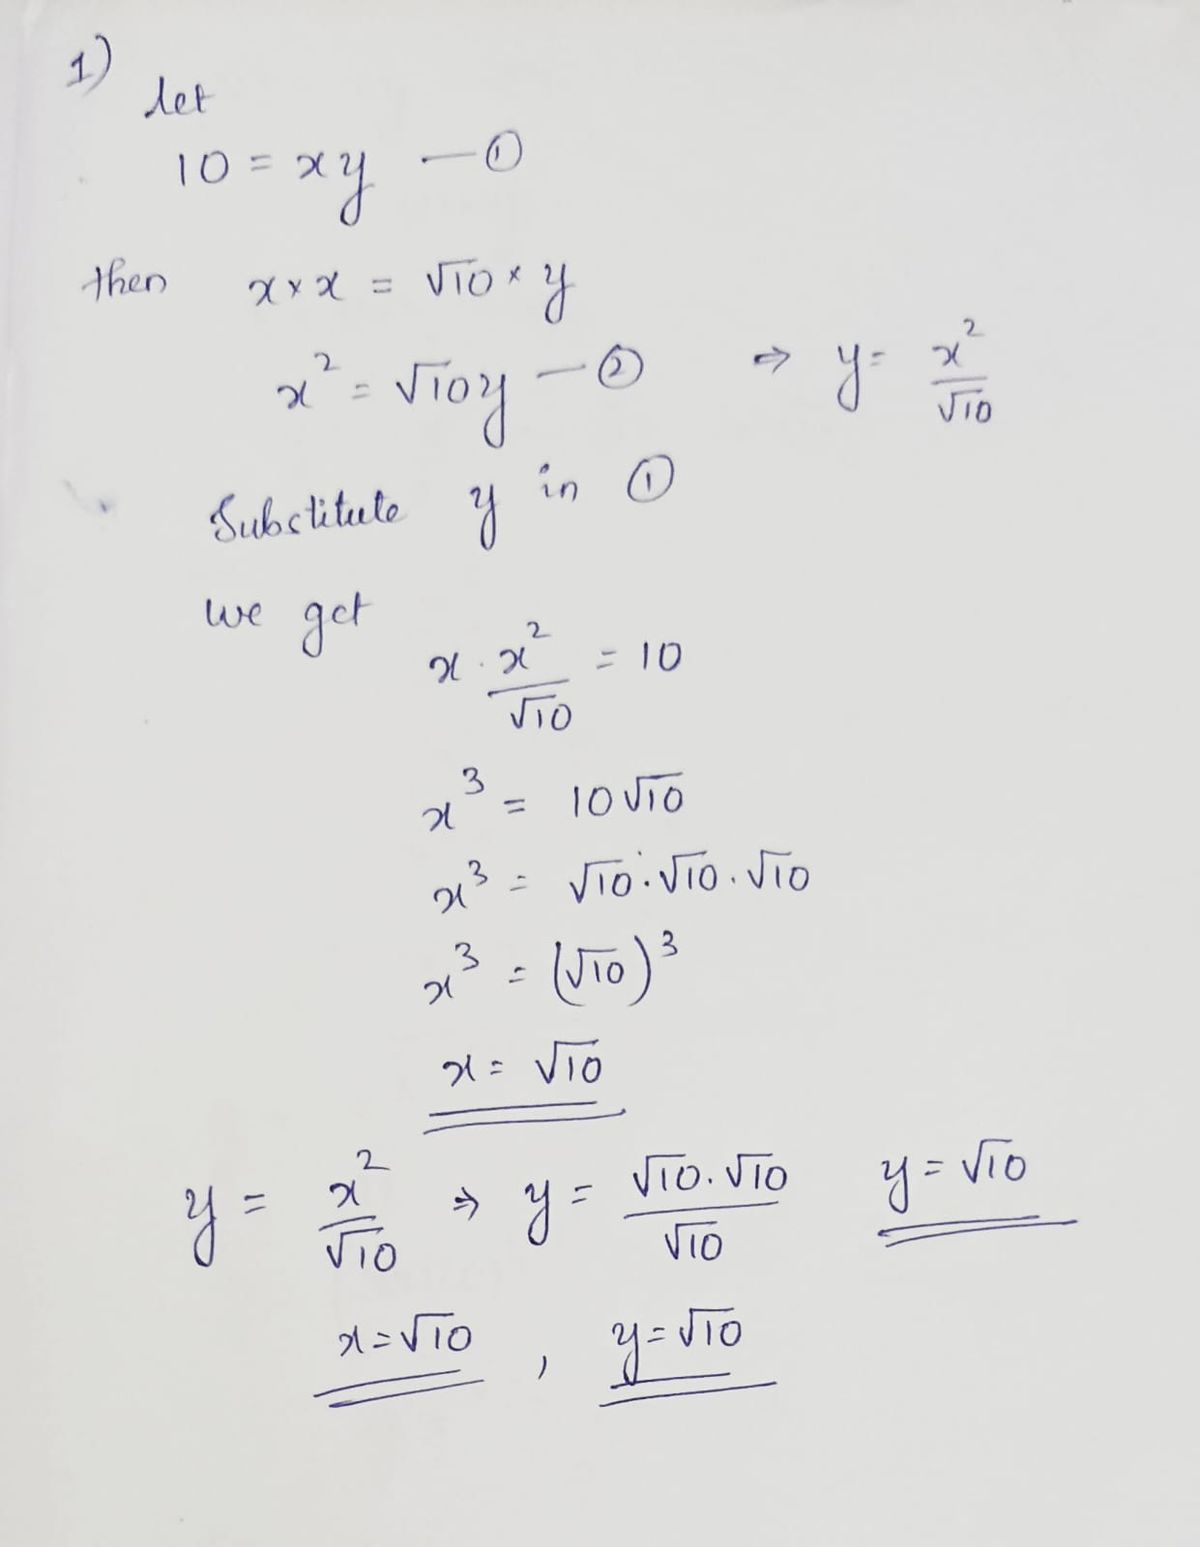 1)
let
10 = xy —①
then x × x = √10 × y
x² = √10y —② ⇒ y = x²/√10
Substitute y in ①
we get
x · x²/√10 = 10
x³ = 10√10
x³ = √10 · √10 · √10
x³ = (√10)³
x = √10
y = x²/√10 ⇒ y = √10 · √10/√10 y = √10
x = √10 , y = √10